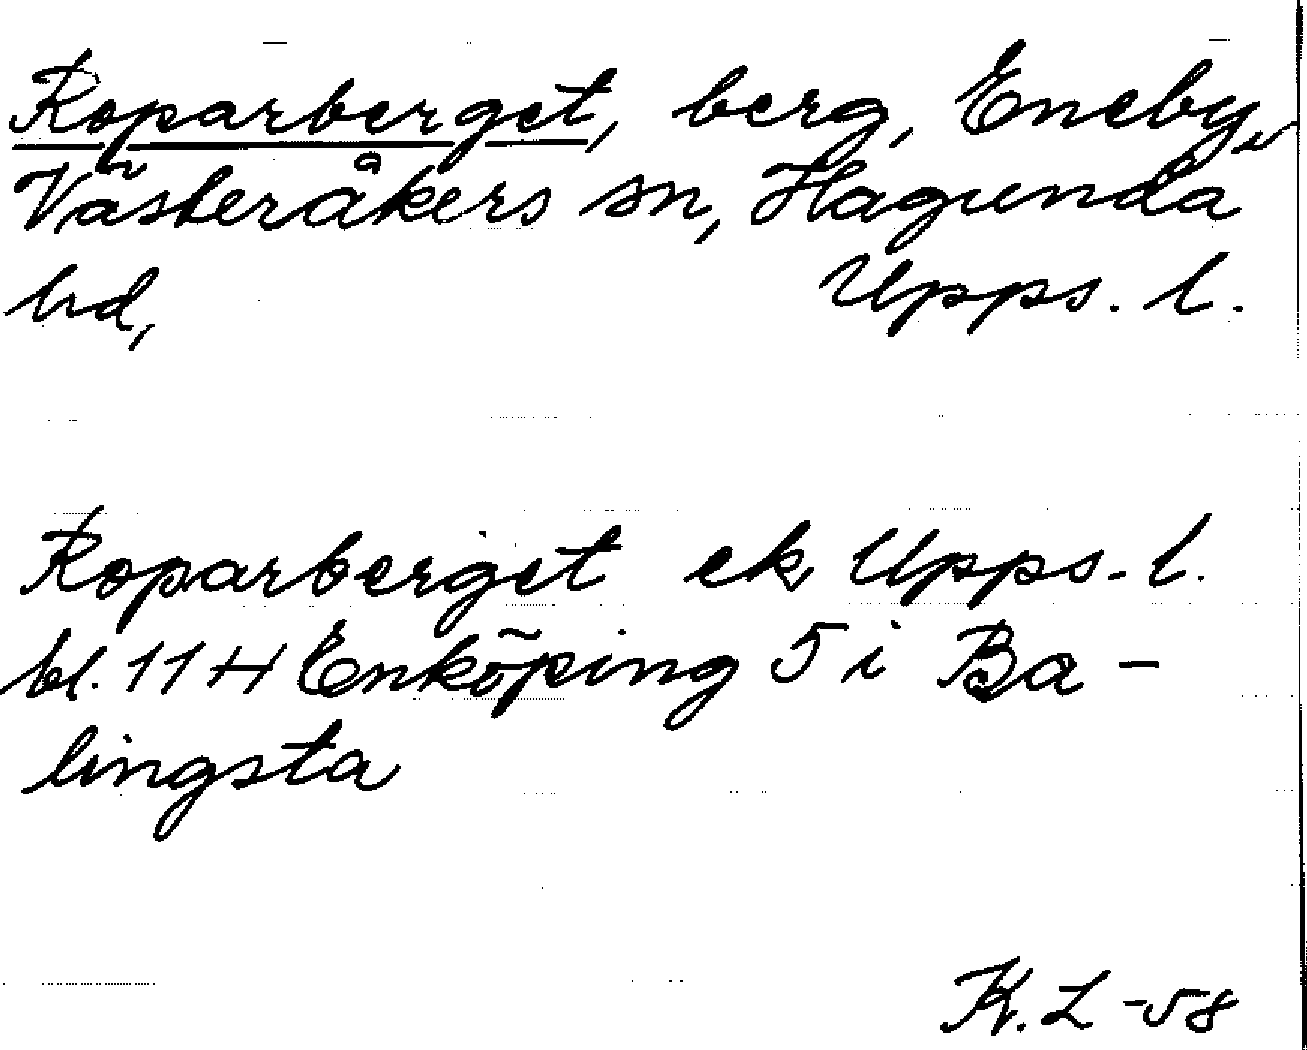 Roparberget, berg, Eneby,
Västeråkers sn, Hagunda
hd, Upps. l.
Roparberget ek Upps. l.
bl. 11 H Enköping 5 i Ba-
lingsta
K. L -58